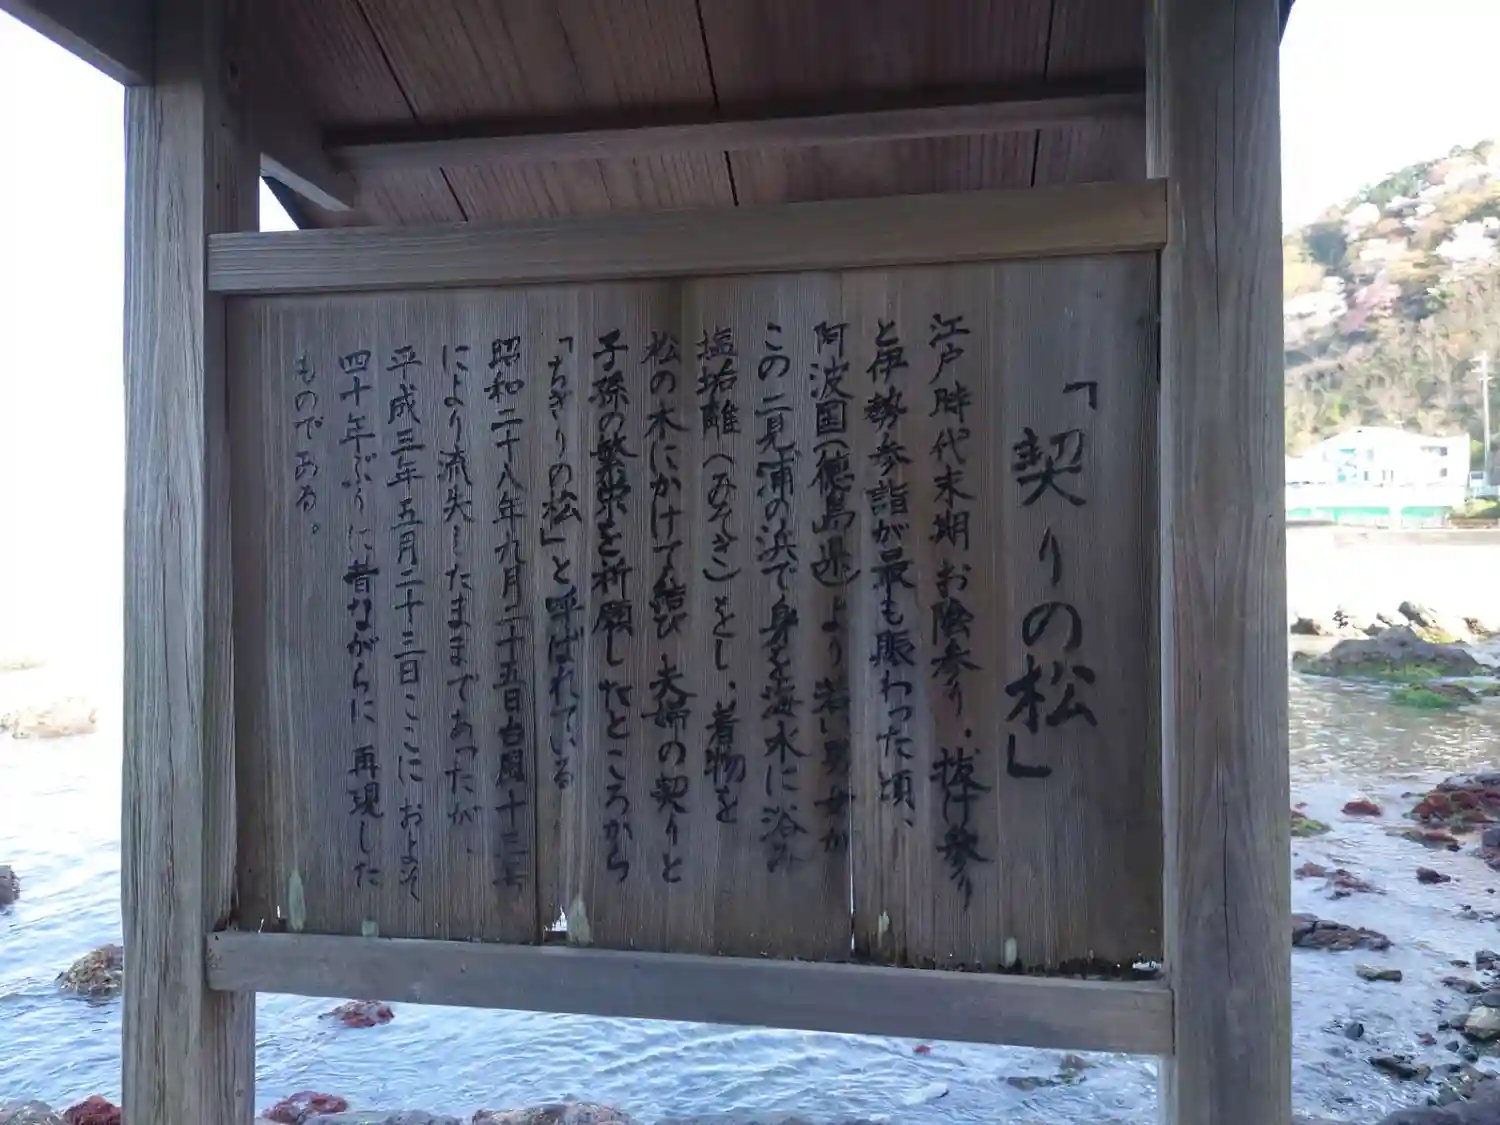 「契りの松」
江戸時代末期お陰参り、抜け参り
と伊勢参詣が最も賑わった頃、
阿波国(徳島県)より若い男女が
この二見浦の浜で身を海水に浴み
塩垢離(みそぎ)をし、着物を
松の木にかけて結び、夫婦の契りと
子孫の繁栄を祈願したところから
「ちぎりの松」と呼ばれている
昭和二十八年九月二十五日台風十三号
により流失したままであったが、
平成三年五月二十三日ここにおよそ
四十年ぶりに、昔ながらに再現した
ものである。